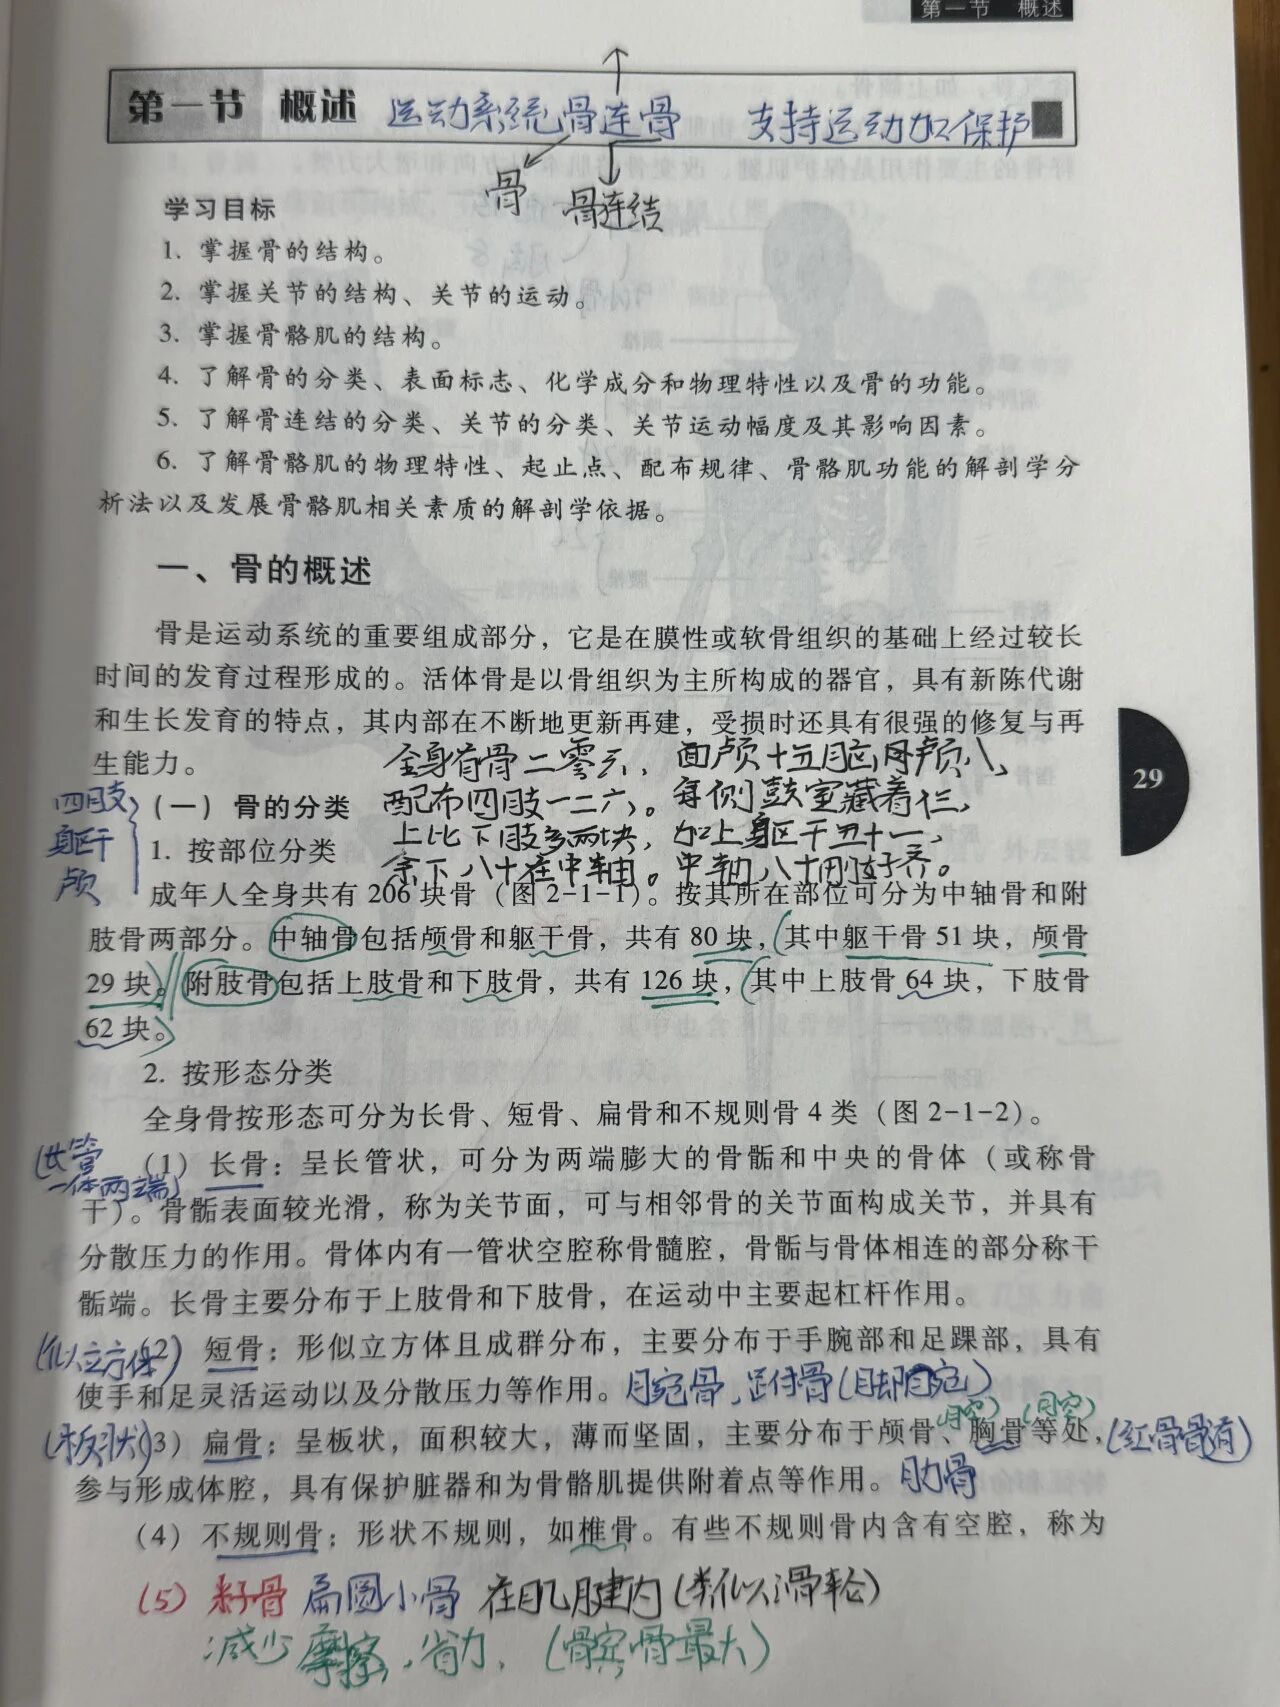 第一节 概述
第一节 概述 运动系统骨连骨 支持运动加保护
骨 骨连结
学习目标
1. 掌握骨的结构。
2. 掌握关节的结构、关节的运动。
3. 掌握骨骼肌的结构。
4. 了解骨的分类、表面标志、化学成分和物理特性以及骨的功能。
5. 了解骨连结的分类、关节的分类、关节运动幅度及其影响因素。
6. 了解骨骼肌的物理特性、起止点、配布规律、骨骼肌功能的解剖学分
析法以及发展骨骼肌相关素质的解剖学依据。
一、骨的概述
骨是运动系统的重要组成部分，它是在膜性或软骨组织的基础上经过较长
时间的发育过程形成的。活体骨是以骨组织为主所构成的器官，具有新陈代谢
和生长发育的特点，其内部在不断地更新再建，受损时还具有很强的修复与再
生能力。
全身首骨二零六，面颅十五脑颅八，
29
四肢
躯干
颅
（一）骨的分类 配布四肢一二六。每侧鼓室藏着仨，
上比下肢多两块，加上躯干五十一，
1. 按部位分类 余下八十在中轴。中轴八十刚凑齐。
成年人全身共有 206 块骨（图 2-1-1）。按其所在部位可分为中轴骨和附
肢骨两部分。中轴骨包括颅骨和躯干骨，共有 80 块，其中躯干骨 51 块，颅骨
29 块。附肢骨包括上肢骨和下肢骨，共有 126 块，其中上肢骨 64 块，下肢骨
62 块。
2. 按形态分类
全身骨按形态可分为长骨、短骨、扁骨和不规则骨 4 类（图 2-1-2）。
(长管
一体两端)
（1）长骨：呈长管状，可分为两端膨大的骨骺和中央的骨体（或称骨
干）。骨骺表面较光滑，称为关节面，可与相邻骨的关节面构成关节，并具有
分散压力的作用。骨体内有一管状空腔称骨髓腔，骨骺与骨体相连的部分称干
骺端。长骨主要分布于上肢骨和下肢骨，在运动中主要起杠杆作用。
(似立方体)
（2）短骨：形似立方体且成群分布，主要分布于手腕部和足踝部，具有
使手和足灵活运动以及分散压力等作用。腕骨，足付骨(脚腕)
(腔) (腔)
(板状)（3）扁骨：呈板状，面积较大，薄而坚固，主要分布于颅骨、胸骨等处，(红骨髓)
参与形成体腔，具有保护脏器和为骨骼肌提供附着点等作用。肋骨
（4）不规则骨：形状不规则，如椎骨。有些不规则骨内含有空腔，称为
(5) 籽骨 扁圆小骨 在肌腱内(类似滑轮)
减少摩擦，省力，(髌骨最大)